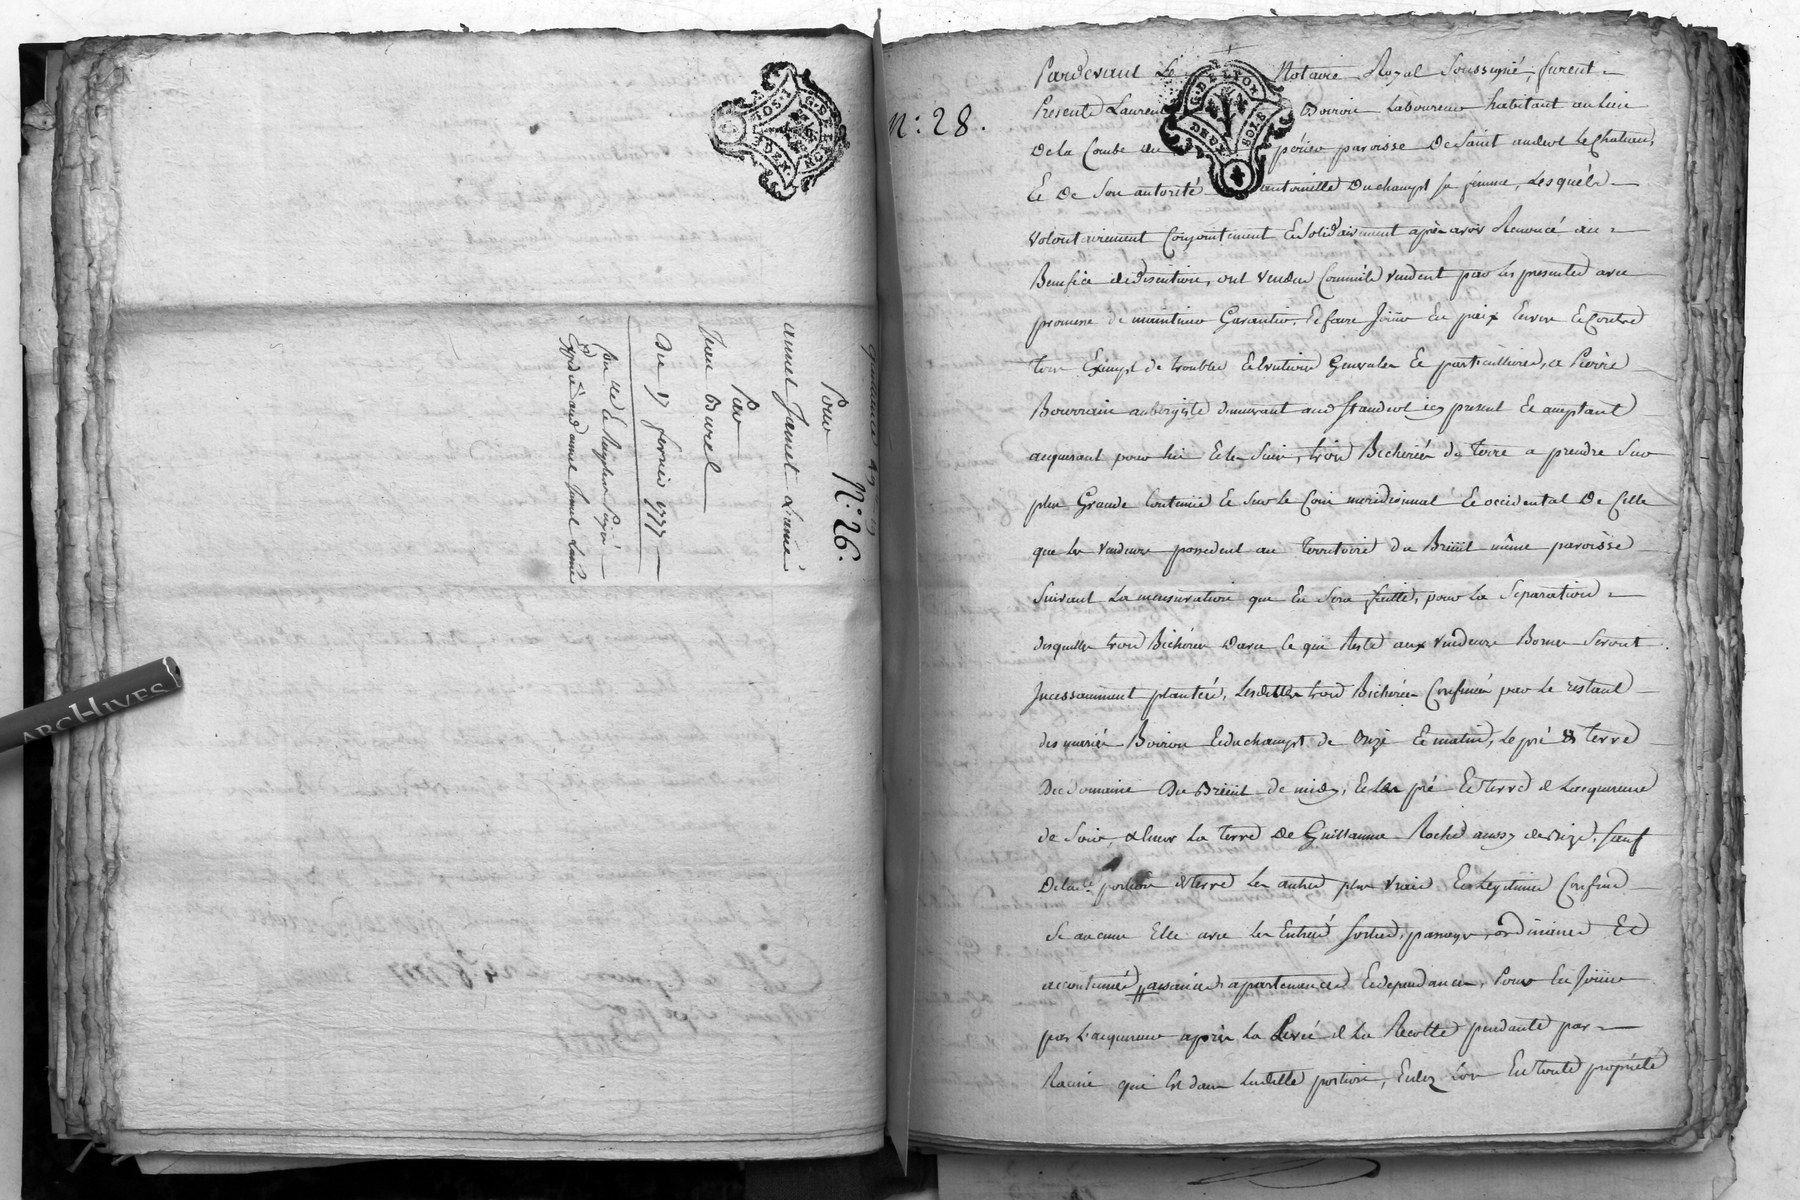 quittance
N.º 26.
Pour
annet Jamet L'ainé
Par
Jean Burel
Du 17 fevrier 1777
ARCHIVES
N.º 28.
G. D. LYON
DEUX SOLS
Pardevant Le Notaire Royal Soussigné, furent
Present Laurent Boiron Laboureur habitant au Lieu
De la Combe du périer paroisse De Saint andeol Le Chateau,
Et De Son autorité antoinette Duchampt sa femme, Lesquels
volontairement Conjointement Et solidairement après avoir Renoncé au
Benefice de Discution, ont vendu Comme ils vendent par les presentes avec
promesse de maintenir Garantir, Et faire Joüir En paix Envers Et Contre
tous Exempt de troubles Et evictions Generales Et particullieres, a Pierre
Bourrain aubergiste demeurant aud St andeol icy present Et acceptant
acquereur pour lui Et les Siens, trois Bicherées de Terre a prendre Sur
plus Grande Contenüe Et Sur le Coin meridional Et occidental De Celle
que les vendeurs possedent au Territoire du Breüil même paroisse
Suivant La mensuration qui En Sera faitte, pour La Separation
desquelles trois Bicherées D'avec Ce qui Reste aux vendeurs Bornes Seront
Incessamment plantées, Lesdittes trois Bicherées Confinées par le restant
des mariés Boiron Et duchampt de Bize Et matin, Le pré & terre
Du domaine Du Breüil de midy, Et les pré Et Terre de L'acquereur
de Soir, & Encore La terre De Guillaume Roche aussy de Bize, Sauf
De lad.e portion de terre Les autres plus vrais Et Legitimes Confins
Si aucuns Elle a avec les Entrées Sorties, passages, ordinaires Et
accoutumés, aisances appartenances Et dependances, Pour En Joüir
par L'acquereur après La Levée de La Recolte pendante par
Racine qui Est dans Laditte portion, Et des Lors En toute propriété